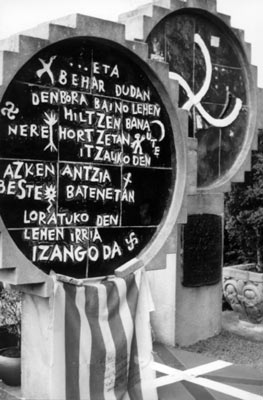 ...ETA
BEHAR DUDAN
DENBORA BAINO LEHEN
HILTZEN BANAUTE
NERE HORTZETAN
ITZALIKO DEN
AZKEN ANTZIA
BESTE BATENETAN
LORATUKO DEN
LEHEN IRRIA
IZANGO DA